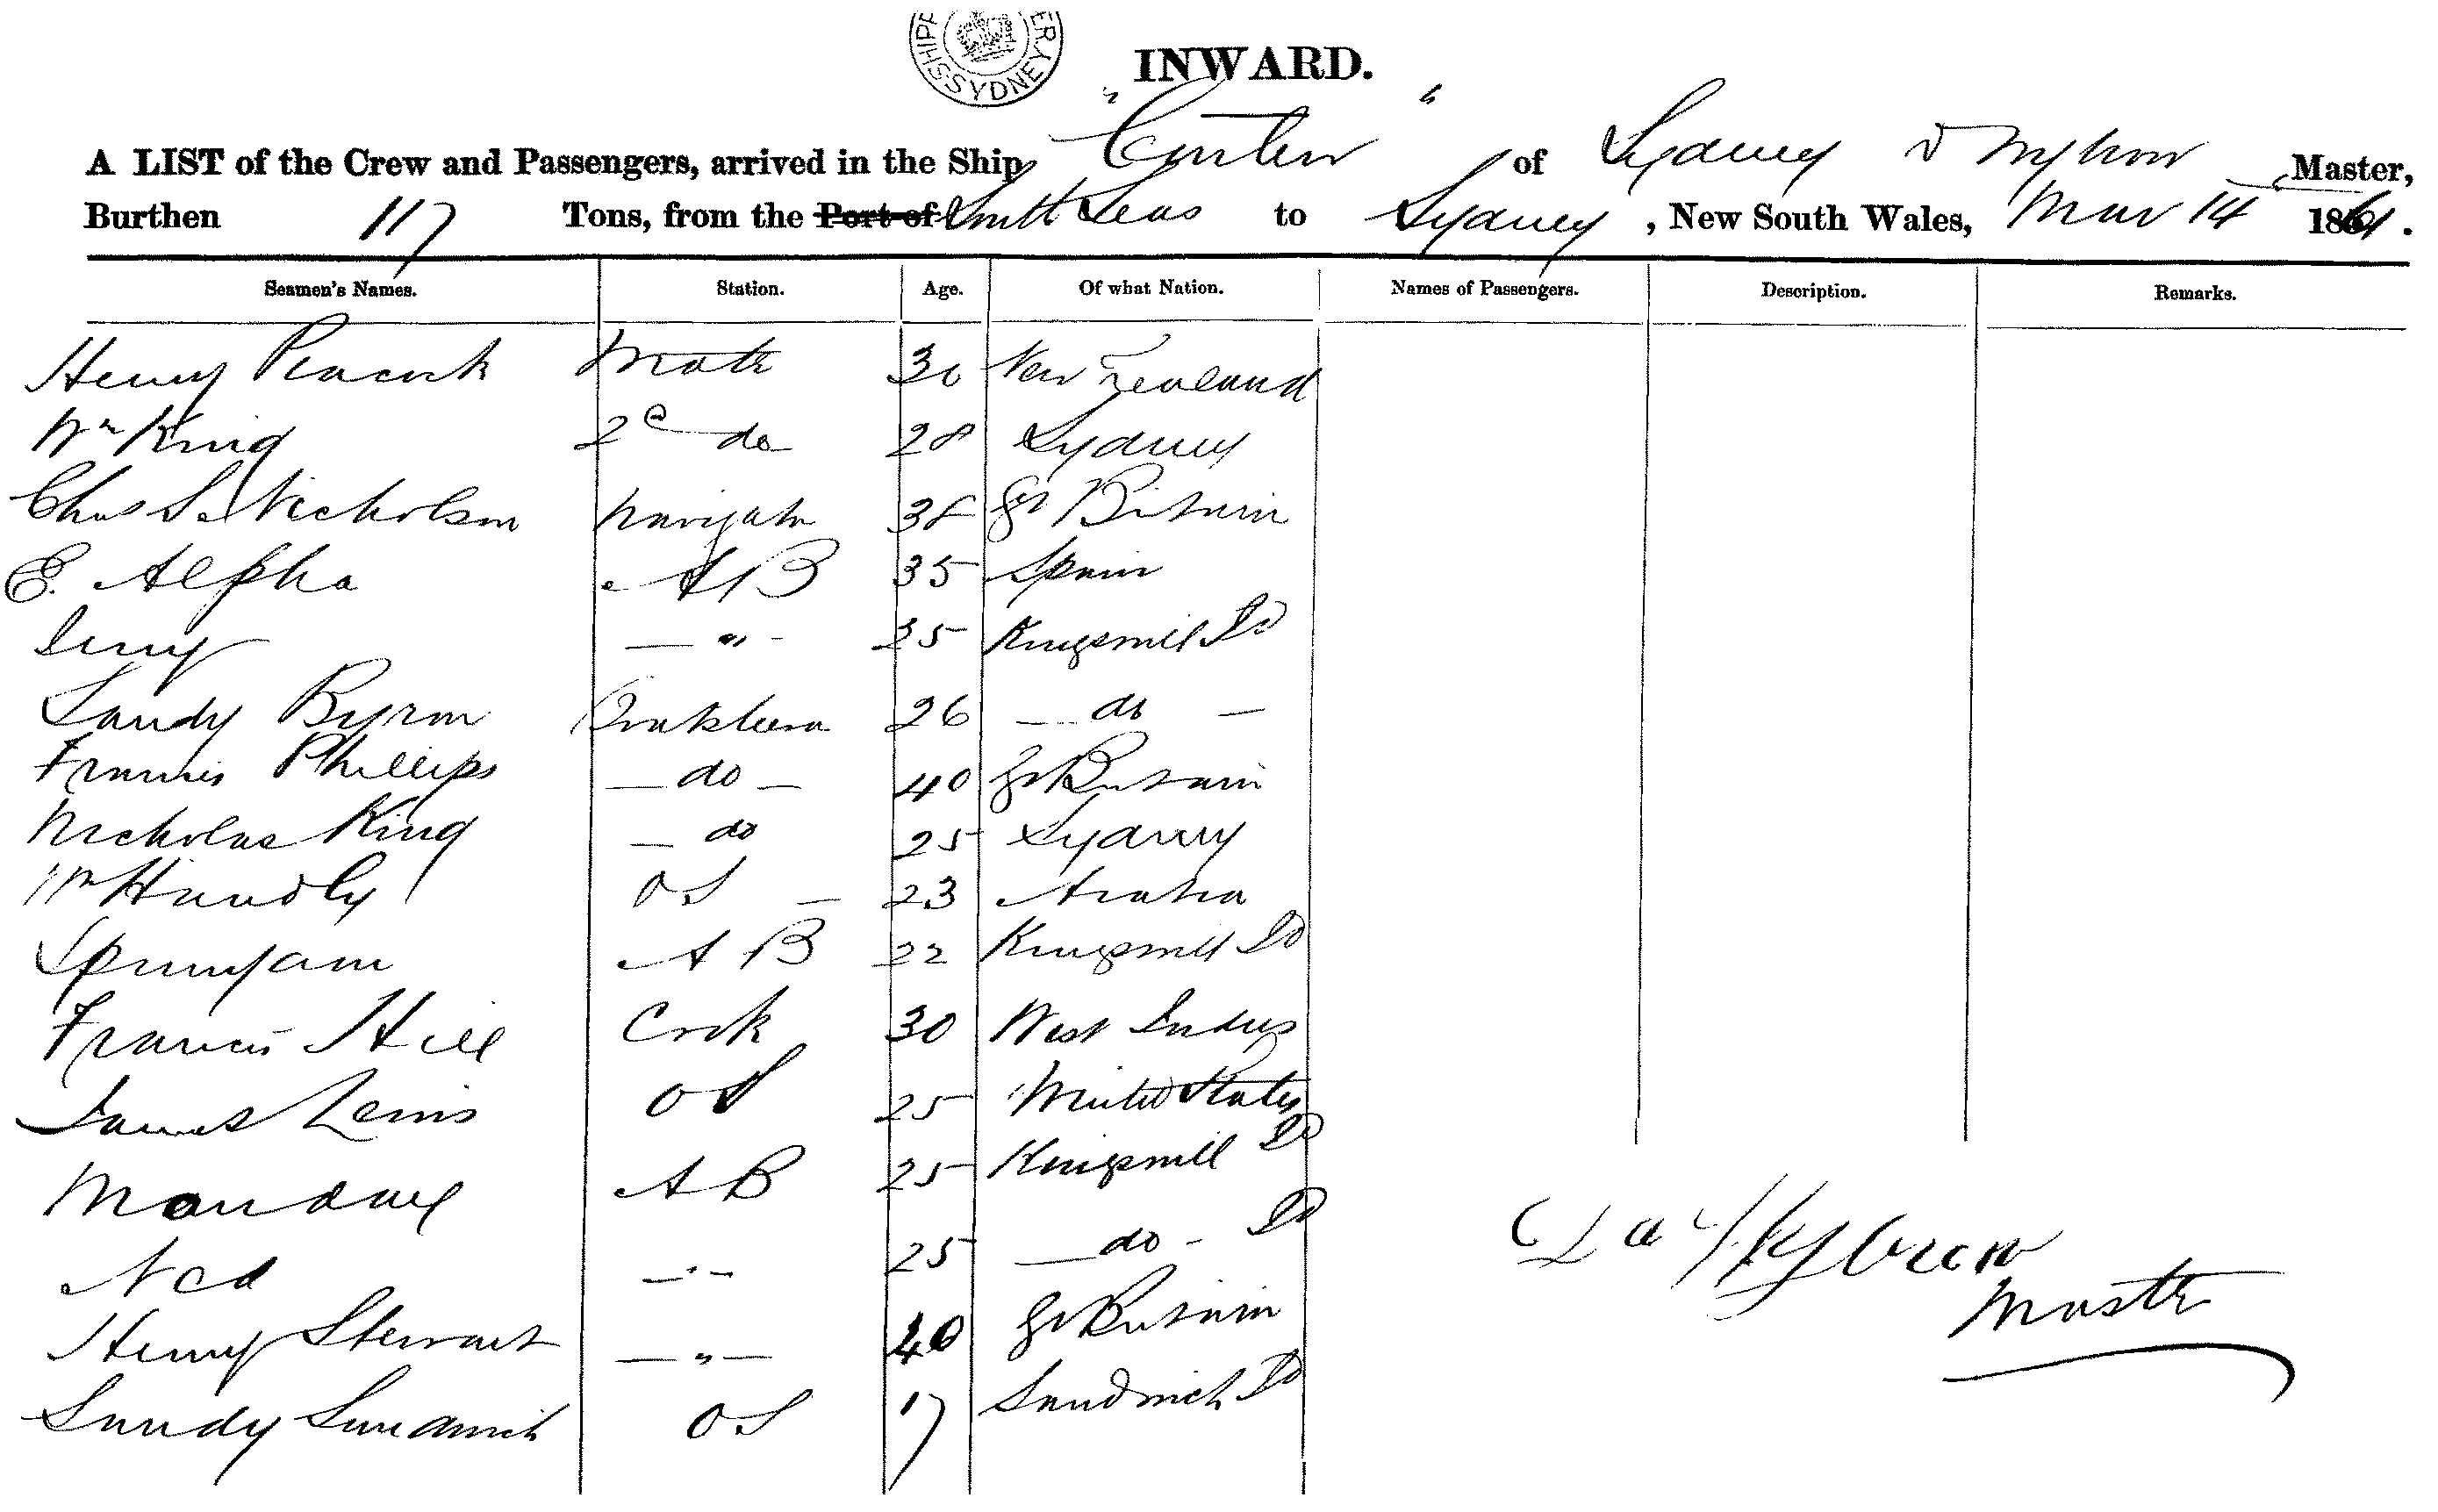 SHIPP ER SYDNEY
INWARD.
A LIST of the Crew and Passengers, arrived in the Ship " " of Sydney Master,
Burthen 117 Tons, from the Port of South Seas to Sydney, New South Wales, Mar 14 1861.
Seamen's Names. Station. Age. Of what Nation. Names of Passengers. Description. Remarks.
Henry Peacock Mate 30 New Zealand
Wm King 2e do 28 Sydney
Chas S. Nicholson Navigator 38 Gt Britain
E. Alpha AB 35 Spain
Jerry — " - 25 Kingsmill Id
Sandy Byron 26 — do —
Francis Phillips — do — 40 Gt Britain
Nicholas King — do 25 Sydney
Wm Handly OS — 23
Spunyarn AB 22 Kingsmill Id
Francis Hill Cook 30 West Indies
James Lewis OS 25 United States
Monday AB 25 Kingsmill Id
Ned — " — 25 — do - Id
Henry Stewart — " — 40 Gt Britain
Sandy Sandwich OS 17 Sandwich Id
Master